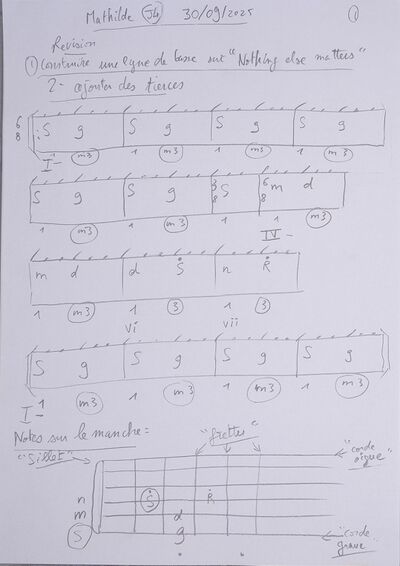 Mathilde J4 30/09/2025 1
Revision
1 construire une ligne de basse sur "Nothing else matters"
2- ajouter des tierces
6 8 S g S g S g S g
I- 1 m3 1 m3 1 m3 1 m3
S g S g 3 8 S 6 8 m d
1 m3 1 m3 1 1 m3
IV-
m d d S n R
1 m3 1 3 1 3
vi vii
S g S g S g S g
1 m3 1 m3 1 m3 1 m3
I-
Notes sur le manche:
"frettes"
"Sillet"
"corde aigue"
n S R
m d
S g
"corde grave"